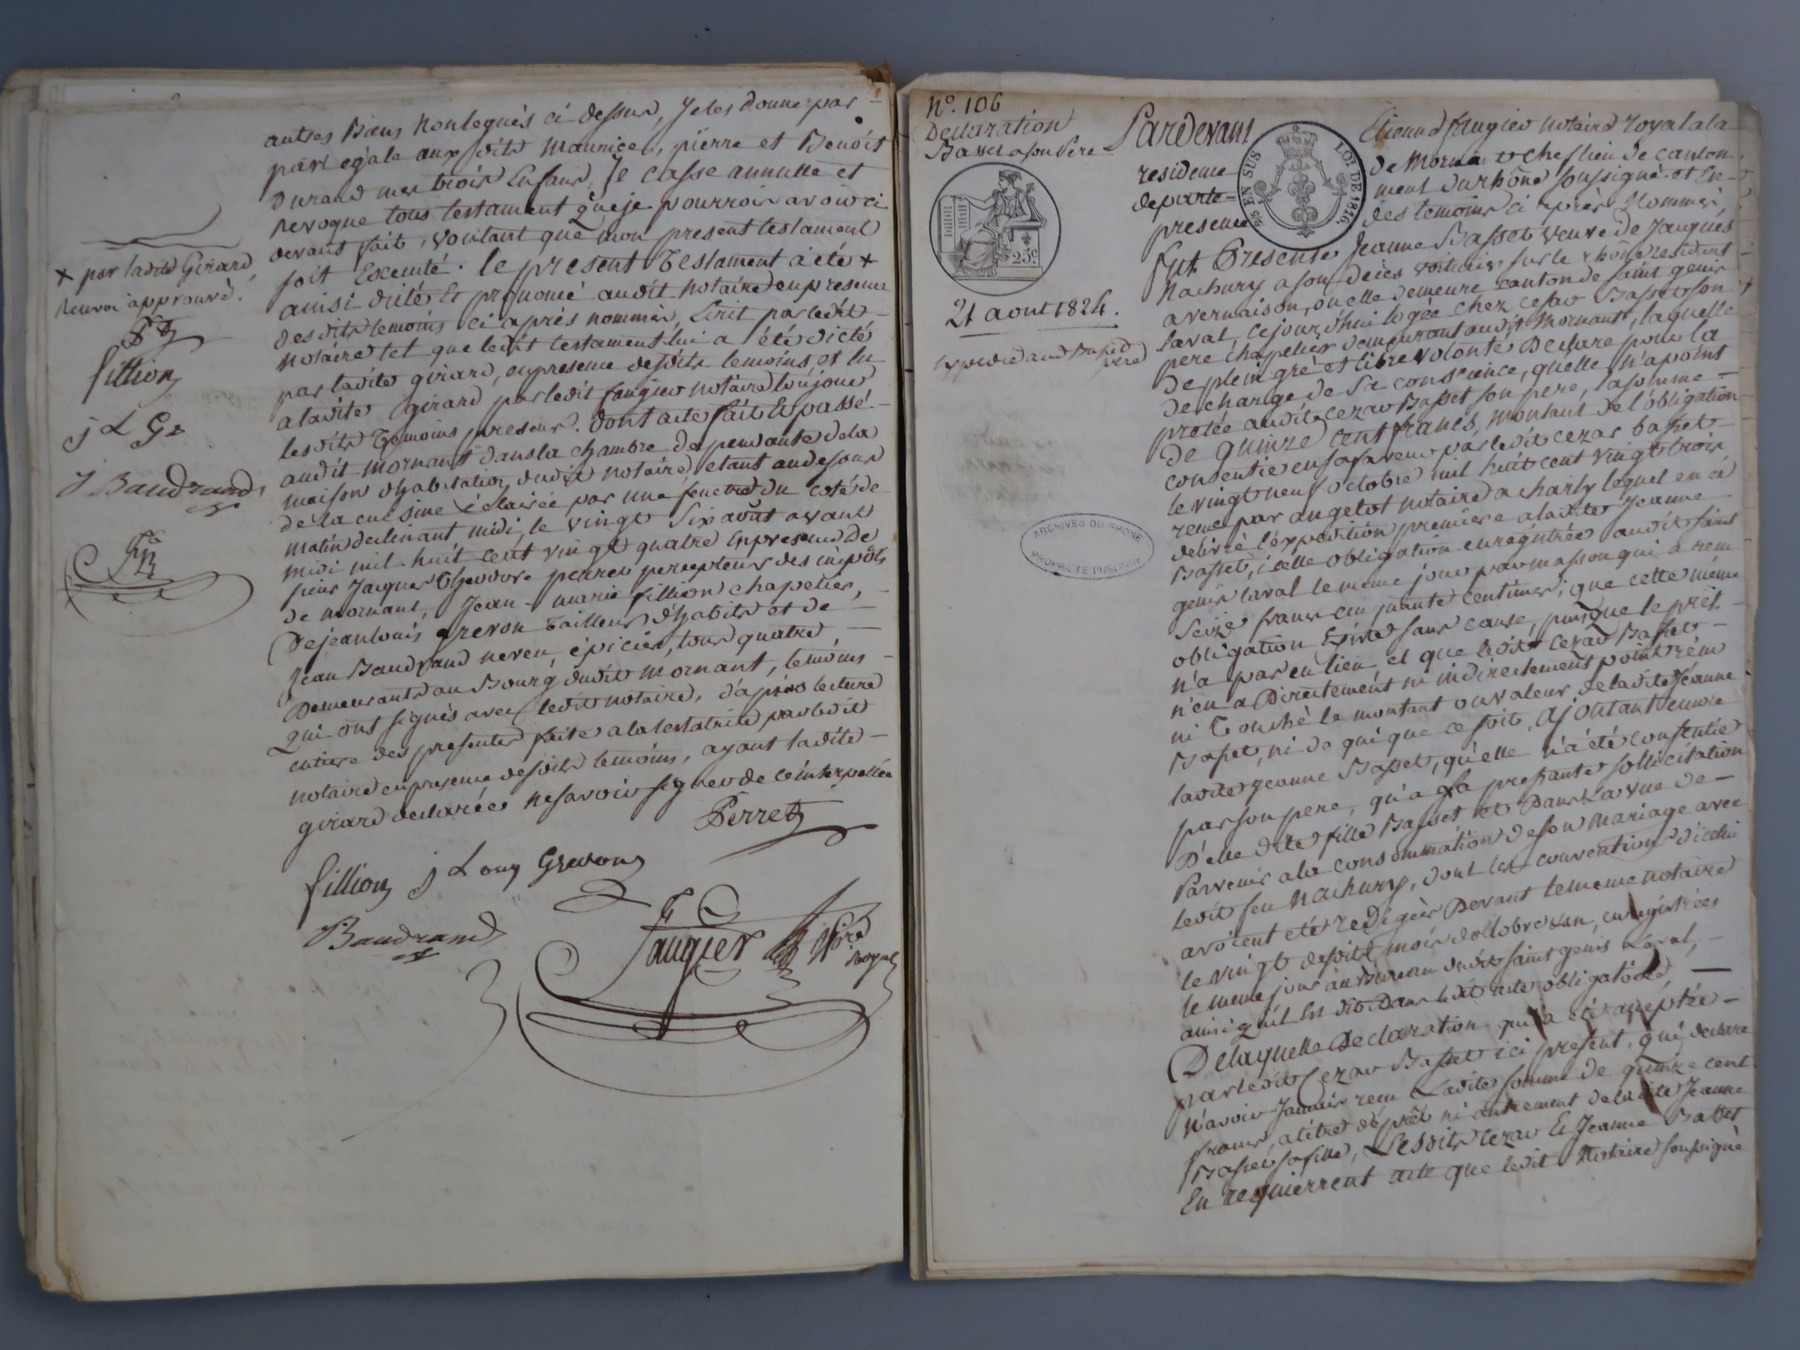 autres Biens non legués ci dessus, Je les donne par -
part egale aux dits Maurice, pierre et Benoit
Durand mes trois Enfans, Je Casse annulle et
Revoque tous testament que je pourrois avoir ci
devant fait, voulant que mon present testament
soit Executé. le present Testament a été +
ainsi dicté Et prononcé audit notaire en presence
desdits temoins ci après nommés, Ecrit par ledit -
notaire tel que ledit testament lui a été dicté
par ladite girard, en presence desdits temoins, et lu
a ladite girard par ledit faugier notaire toujours
lesdits Temoins presens. dont acte fait Et passé -
audit mornant dans la chambre dependante de la
maison d'habitation dudit notaire, etant au desous
de la cuisine éclairée par une fenetre du coté de
matin declinant midi, le vingt Six août avant
midi mil huit cent vingt quatre En presence de
sieur Jacques Theodore perret percepteur des impôts
de mornant, Jean - marie fillion chapelier, -
De jean louis grevon Tailleur d'habits et de -
Jean Baudrand neveu épicier, tous quatre, -
Demeurants au Bourg dudit mornant, temoins -
qui ont signés avec ledit notaire, d'après lecture
entiere des presentes faite a la testatrice par ledit
notaire en presence desdits temoins, ayant ladite -
girard declarée ne savoir signer de ce interpellée
Perret
fillion j Louy Grevon
Baudrand
Faugier Nre Royal
+ par ladite Girard,
Renvoi approuvé.
fillion
j L Gr
J Baudrand
N°. 106
Declaration
Basset a son Père
25 c
21 aout 1824.
Expedié audit Basset
père
ARCHIVES DU RHONE
PROPRIÉTÉ PUBLIQUE
EN SUS
LOI DE 1816.
Pardevant Etienne faugier notaire royal a la
residence de Mornant chef lieu de canton
departe- ment du rhône soussigné et En
presence des temoins ci après Nommés,
Fut Presente Jeanne Basset veuve de Jacques
Nachury a son deces voiturier sur le rhône residant
a vernaison, ou elle demeure canton de saint genis
Laval, ce jourd'hui logée chez cezar Basset son
pere Chapelier demeurant audit Mornant, laquelle
De plein gré et libre volonté Declare pour la
decharge de Sa conscience, qu'elle n'a point
pretée audit cezar Basset son pere, la somme -
De Quinze Cent francs, montant de l'obligation
consentie en sa faveur par ledit cezar basset -
le vingt neuf octobre mil huit cent vingt trois
reçue par angelot notaire a charly lequel en a
delivré l'expedition premiere a ladite Jeanne
Basset, icelle obligation enregistrée audit saint
genis laval le meme jour par masson qui a reçu
Seize francs cinquante centimes; que cette même
obligation Existe sans cause, puisque le prêt -
n'a pas eu lieu et que ledit cezar Basset -
n'en a Directement ni indirectement point reçu
ni Touché le montant ou valeur de ladite Jeanne
Basset, ni de qui que ce soit, Ajoutant encore
ladite Jeanne Basset, qu'elle n'a été consentie
par son pere, qu'a la pressante sollicitation
D'elle dite fille Basset et Dans La vue de -
Parvenir a la consommation de son mariage avec
ledit feu Nachury, dont les conventions d'icelui
avoient eté redigées Devant le meme notaire
le vingt desdits mois d'octobre et an, enregistrées
le meme jour au Bureau dudit saint genis Laval, -
ainsi qu'il Est dit Dans ledit acte obligatoire, -
De laquelle Declaration qui a été acceptée -
par ledit Cezar Basset ici present, qui declare
n'avoir Jamais reçu Ladite somme de quinze cent
francs, a titre de prêt ni autrement de ladite Jeanne
Basset sa fille, Lesdits cezar Et Jeanne Basset
En requierrent acte que ledit Notaire soussigné